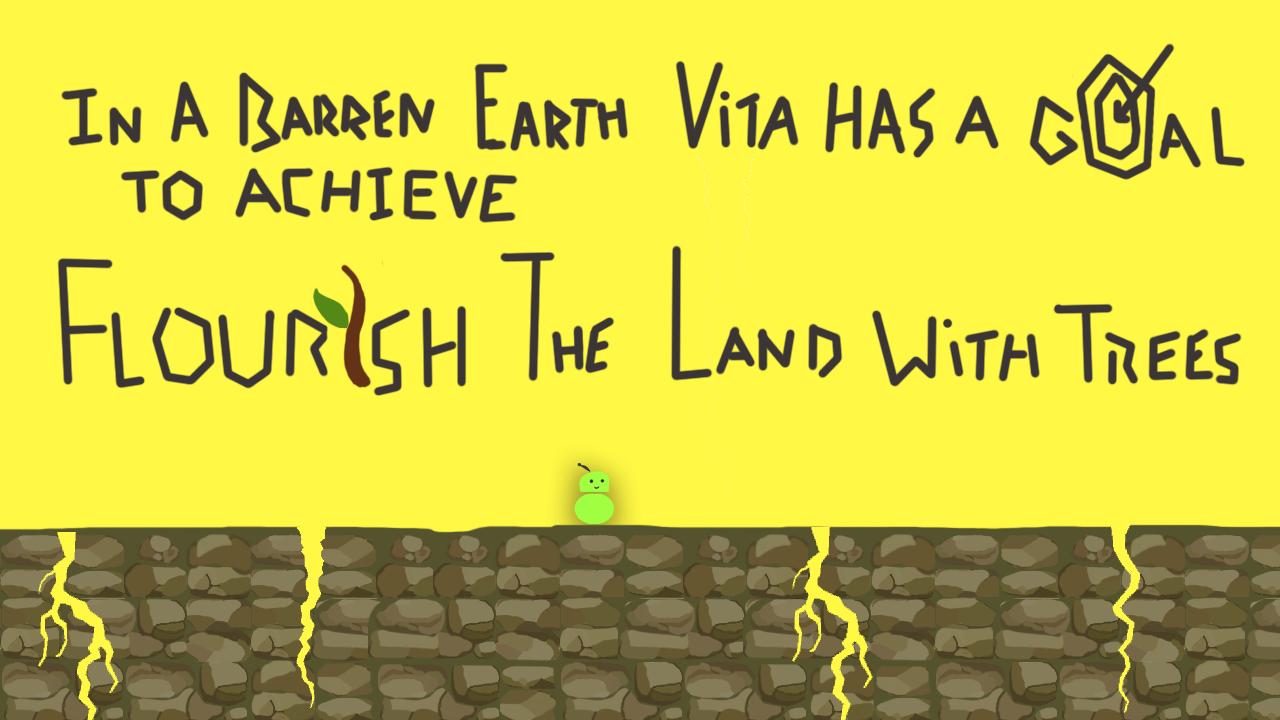 In A Barren Earth Vita has a GOAL
to achieve
Flourish The Land With Trees